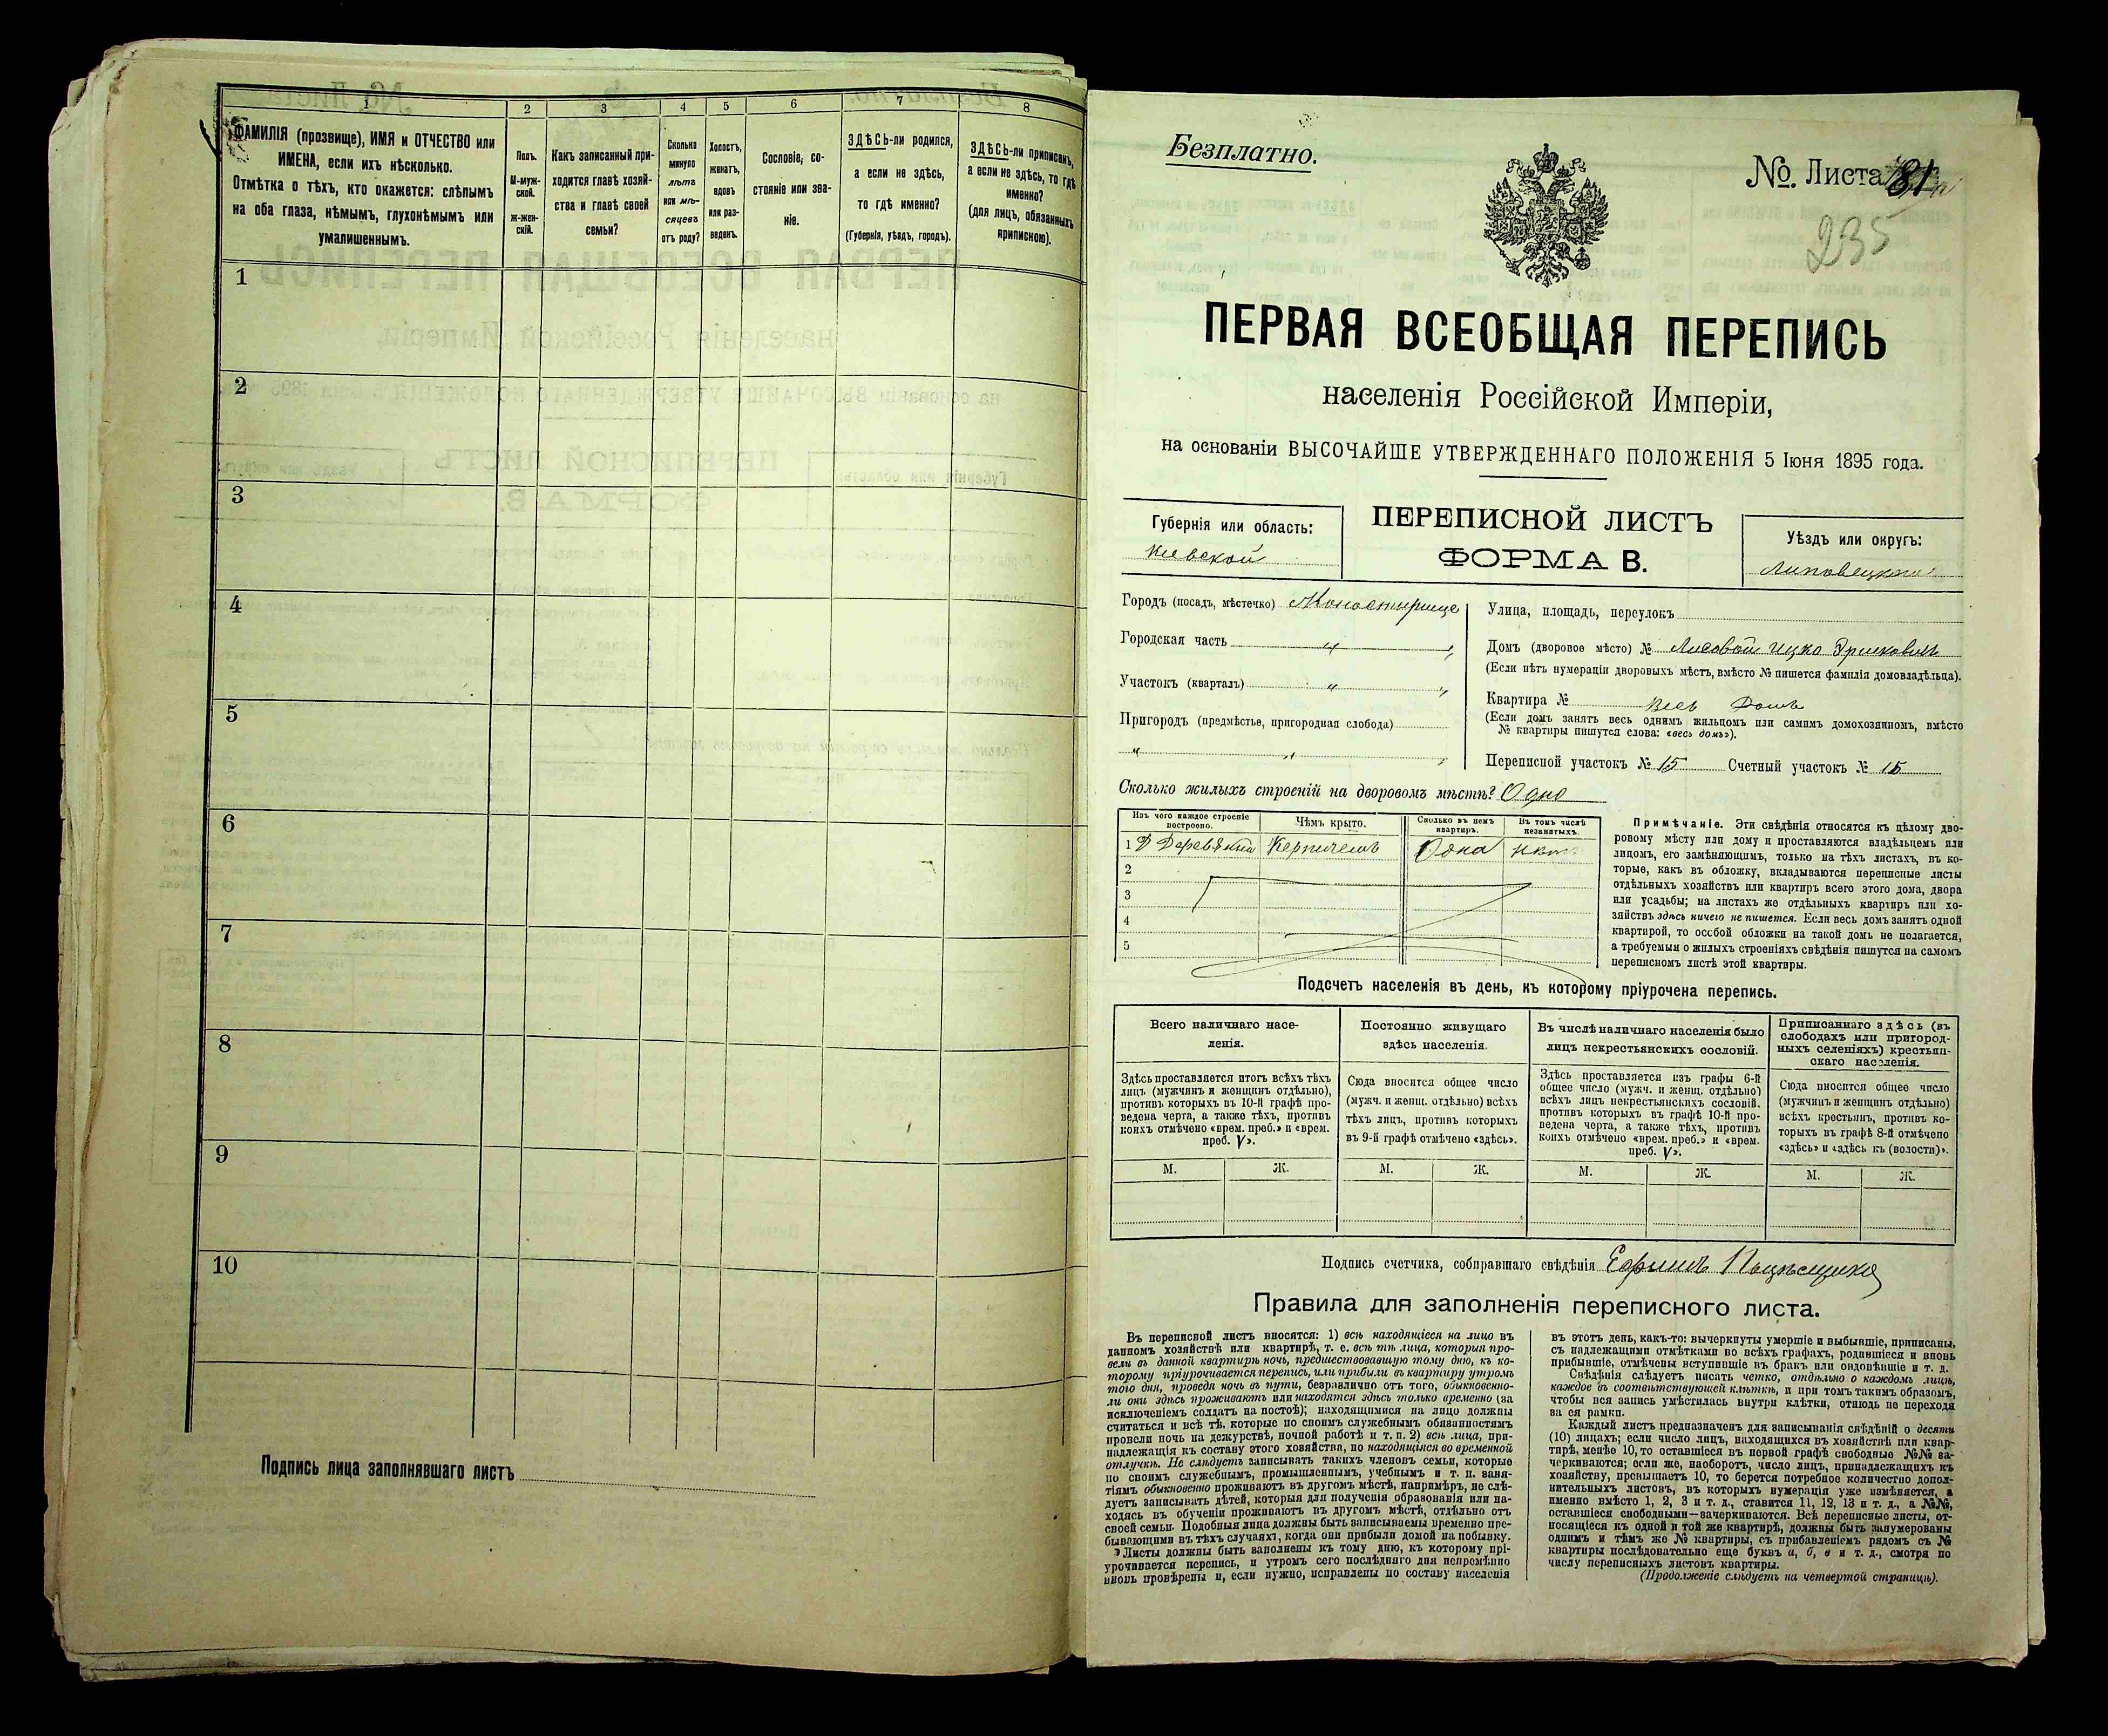 1
2
3
4
5
6
7
8
ФАМИЛІЯ (прозвище), ИМЯ и ОТЧЕСТВО или
ИМЕНА, если ихъ нѣсколько.
Отмѣтка о тѣхъ, кто окажется: слѣпымъ
на оба глаза, нѣмымъ, глухонѣмымъ или
умалишеннымъ.
Полъ.
М-муж-
ской.
Ж-жен-
скій.
Какъ записанный при-
ходится главѣ хозяй-
ства и главѣ своей
семьи?
Сколько
минуло
лѣтъ
или мѣ-
сяцевъ
отъ роду?
Холостъ,
женатъ,
вдовъ
или раз-
веденъ.
Сословіе, со-
стояніе или зва-
ніе.
ЗДѢСЬ-ли родился,
а если не здѣсь,
то гдѣ именно?
(Губернія, уѣздъ, городъ).
ЗДѢСЬ-ли приписанъ,
а если не здѣсь, то гдѣ
именно?
(для лицъ, обязанныхъ
припискою).
1
2
3
4
5
6
7
8
9
10
Подпись лица заполнявшаго листъ
Безплатно.
№. Листа 81
235
ПЕРВАЯ ВСЕОБЩАЯ ПЕРЕПИСЬ
населенія Россійской Имперіи,
на основаніи ВЫСОЧАЙШЕ УТВЕРЖДЕННАГО ПОЛОЖЕНІЯ 5 Іюня 1895 года.
Губернія или область:
Кіевской
ПЕРЕПИСНОЙ ЛИСТЪ
ФОРМА В.
Уѣздъ или округъ:
Липовецкій
Городъ (посадъ, мѣстечко) Монастырище
Городская часть " "
Участокъ (кварталъ) " "
Пригородъ (предмѣстье, пригородная слобода)
" " "
Улица, площадь, переулокъ
Домъ (дворовое мѣсто) № Лисовой Ицко Эршковичъ
(Если нѣтъ нумераціи дворовыхъ мѣстъ, вмѣсто № пишется фамилія домовладѣльца).
Квартира № Весь Домъ
(Если домъ занятъ весь однимъ жильцомъ или самимъ домохозяиномъ, вмѣсто
№ квартиры пишутся слова: «весь домъ»).
Переписной участокъ № 15 Счетный участокъ № 15
Сколько жилыхъ строеній на дворовомъ мѣстѣ? Одно
Изъ чего каждое строеніе
построено.
Чѣмъ крыто.
Сколько въ немъ
квартиръ.
Въ томъ числѣ
незанятыхъ.
1 Керпичемъ Одна
2
3
4
5
Примѣчаніе. Эти свѣдѣнія относятся къ цѣлому дво-
ровому мѣсту или дому и проставляются владѣльцемъ или
лицомъ, его замѣняющимъ, только на тѣхъ листахъ, въ ко-
торые, какъ въ обложку, вкладываются переписные листы
отдѣльныхъ хозяйствъ или квартиръ всего этого дома, двора
или усадьбы; на листахъ же отдѣльныхъ квартиръ или хо-
зяйствъ здѣсь ничего не пишется. Если весь домъ занятъ одной
квартирой, то особой обложки на такой домъ не полагается,
а требуемыя о жилыхъ строеніяхъ свѣдѣнія пишутся на самомъ
переписномъ листѣ этой квартиры.
Подсчетъ населенія въ день, къ которому пріурочена перепись.
Всего наличнаго насе-
ленія.
Постоянно живущаго
здѣсь населенія.
Въ числѣ наличнаго населенія было
лицъ некрестьянскихъ сословій.
Приписаннаго здѣсь (въ
слободахъ или пригород-
ныхъ селеніяхъ) крестьян-
скаго населенія.
Здѣсь проставляется итогъ всѣхъ тѣхъ
лицъ (мужчинъ и женщинъ отдѣльно),
противъ которыхъ въ 10-й графѣ про-
ведена черта, а также тѣхъ, противъ
коихъ отмѣчено «врем. преб.» и «врем.
преб. V».
Сюда вносится общее число
(мужч. и женщ. отдѣльно) всѣхъ
тѣхъ лицъ, противъ которыхъ
въ 9-й графѣ отмѣчено «здѣсь».
Здѣсь проставляется изъ графы 6-й
общее число (мужч. и женщ. отдѣльно)
всѣхъ лицъ некрестьянскихъ сословій,
противъ которыхъ въ графѣ 10-й про-
ведена черта, а также тѣхъ, противъ
коихъ отмѣчено «врем. преб.» и «врем.
преб. V».
Сюда вносится общее число
(мужчинъ и женщинъ отдѣльно)
всѣхъ крестьянъ, противъ ко-
торыхъ въ графѣ 8-й отмѣчено
«здѣсь» и «здѣсь къ (волости)».
М. Ж. М. Ж. М. Ж. М. Ж.
Подпись счетчика, собиравшаго свѣдѣнія
Правила для заполненія переписного листа.
Въ переписной листъ вносятся: 1) всѣ находящіеся на лицо въ
данномъ хозяйствѣ или квартирѣ, т. е. всѣ тѣ лица, которыя про-
вели въ данной квартирѣ ночь, предшествовавшую тому дню, къ ко-
торому пріурочивается перепись, или прибыли въ квартиру утромъ
того дня, проведя ночь въ пути, безразлично отъ того, обыкновенно-
ли они здѣсь проживаютъ или находятся здѣсь только временно (за
исключеніемъ солдатъ на постоѣ); находящимися на лицо должны
считаться и всѣ тѣ, которые по своимъ служебнымъ обязанностямъ
провели ночь на дежурствѣ, ночной работѣ и т. п. 2) всѣ лица, при-
надлежащія къ составу этого хозяйства, но находящіяся во временной
отлучкѣ. Не слѣдуетъ записывать такихъ членовъ семьи, которые
по своимъ служебнымъ, промышленнымъ, учебнымъ и т. п. заня-
тіямъ обыкновенно проживаютъ въ другомъ мѣстѣ, напримѣръ, не слѣ-
дуетъ записывать дѣтей, которыя для полученія образованія или на-
ходясь въ обученіи проживаютъ въ другомъ мѣстѣ, отдѣльно отъ
своей семьи. Подобныя лица должны быть записываемы временно пре-
бывающими въ тѣхъ случаяхъ, когда они прибыли домой на побывку.
Листы должны быть заполнены къ тому дню, къ которому прі-
урочивается перепись, и утромъ сего послѣдняго дня непремѣнно
вновь провѣрены и, если нужно, исправлены по составу населенія
въ этотъ день, какъ-то: вычеркнуты умершіе и выбывшіе, приписаны,
съ надлежащими отмѣтками во всѣхъ графахъ, родившіеся и вновь
прибывшіе, отмѣчены вступившіе въ бракъ или овдовѣвшіе и т. д.
Свѣдѣнія слѣдуетъ писать четко, отдѣльно о каждомъ лицѣ,
каждое въ соотвѣтствующей клѣткѣ, и при томъ такимъ образомъ,
чтобы вся запись умѣстилась внутри клѣтки, отнюдь не переходя
за ея рамки.
Каждый листъ предназначенъ для записыванія свѣдѣній о десяти
(10) лицахъ; если число лицъ, находящихся въ хозяйствѣ или квар-
тирѣ, менѣе 10, то оставшіеся въ первой графѣ свободные №№ за-
черкиваются; если же, наоборотъ, число лицъ, принадлежащихъ къ
хозяйству, превышаетъ 10, то берется потребное количество допол-
нительныхъ листовъ, въ которыхъ нумерація уже измѣняется, а
именно вмѣсто 1, 2, 3 и т. д., ставится 11, 12, 13 и т. д., а №№,
оставшіеся свободными—зачеркиваются. Всѣ переписные листы, от-
носящіеся къ одной и той же квартирѣ, должны быть занумерованы
однимъ и тѣмъ же № квартиры, съ прибавленіемъ рядомъ съ №
квартиры послѣдовательно еще буквъ а, б, в и т. д., смотря по
числу переписныхъ листовъ квартиры.
(Продолженіе слѣдуетъ на четвертой страницѣ).